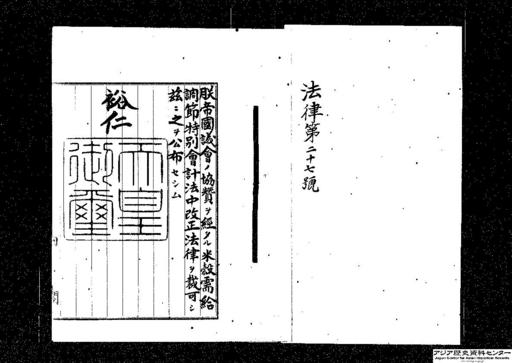 法律第二十七號
朕帝國議會ノ協贊ヲ經タル米穀需給
調節特別會計法中改正法律ヲ裁可シ
玆ニ之ヲ公布セシム
裕仁
天皇
御璽
アジア歴史資料センター
Japan Center for Asian Historical Records